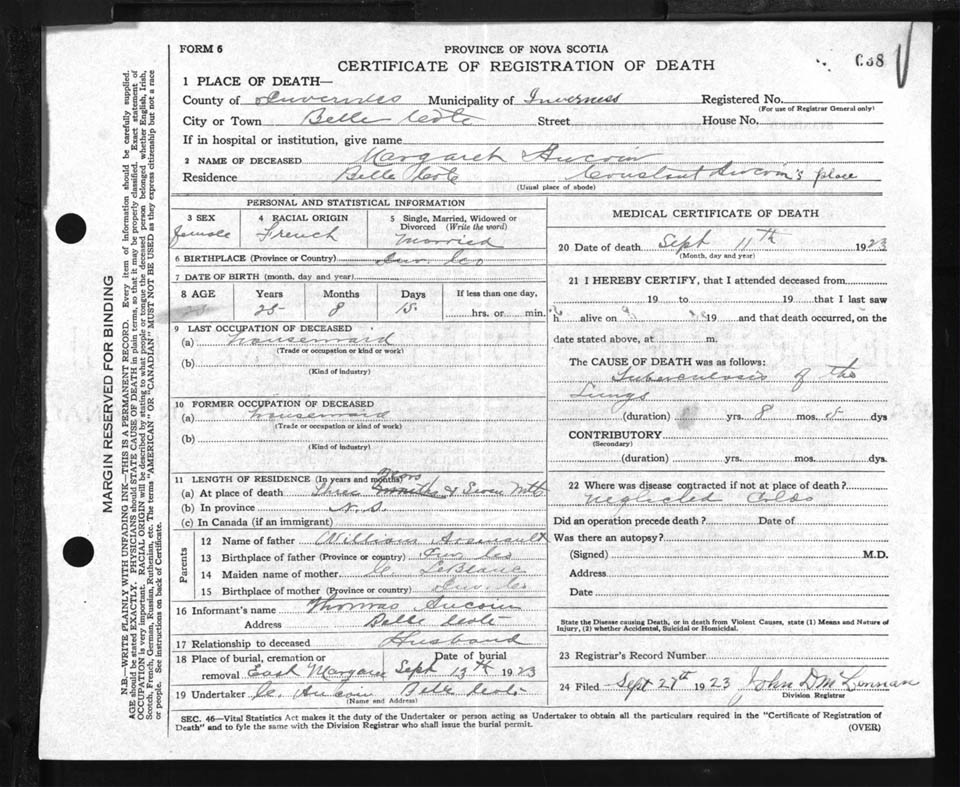 FORM 6
PROVINCE OF NOVA SCOTIA
CERTIFICATE OF REGISTRATION OF DEATH
638
1 PLACE OF DEATH—
County of Inverness Municipality of Inverness Registered No.
(For use of Registrar General only)
City or Town Belle Cote Street House No.
If in hospital or institution, give name
2 NAME OF DECEASED Margaret Aucoin
Residence Belle Cote Constant Aucoin's place
(Usual place of abode)
PERSONAL AND STATISTICAL INFORMATION
3 SEX 4 RACIAL ORIGIN 5 Single, Married, Widowed or Divorced (Write the word)
female French Married
6 BIRTHPLACE (Province or Country) Inv. Co
7 DATE OF BIRTH (month, day and year)
8 AGE Years Months Days If less than one day,
25 8 15 hrs. or min.
9 LAST OCCUPATION OF DECEASED
(a) Housework
(Trade or occupation or kind or work)
(b)
(Kind of industry)
10 FORMER OCCUPATION OF DECEASED
(a) Housework
(Trade or occupation or kind of work)
(b)
(Kind of industry)
11 LENGTH OF RESIDENCE (In years and months)
(a) At place of death Three Years & Seven Mths
(b) In province N. S.
(c) In Canada (if an immigrant)
Parents
12 Name of father William Arsenault
13 Birthplace of father (Province or country) Inv Co
14 Maiden name of mother C LeBlanc
15 Birthplace of mother (Province or country) Inv. Co
16 Informant's name Thomas Aucoin
Address Belle Cote
17 Relationship to deceased Husband
18 Place of burial, cremation or removal East Margaree Date of burial Sept 13th 1923
19 Undertaker C. Aucoin Belle Cote
(Name and Address)
MEDICAL CERTIFICATE OF DEATH
20 Date of death Sept 11th 1923
(Month, day and year)
21 I HEREBY CERTIFY, that I attended deceased from
19 to 19 that I last saw
h alive on 19 and that death occurred, on the
date stated above, at m.
The CAUSE OF DEATH was as follows:
Tuberculosis of the
Lungs
(duration) yrs. 8 mos. dys
CONTRIBUTORY
(Secondary)
(duration) yrs. mos. dys.
22 Where was disease contracted if not at place of death?
Neglected Colds
Did an operation precede death? Date of
Was there an autopsy?
(Signed) M.D.
Address
Date
State the Disease causing Death, or in death from Violent Causes, state (1) Means and Nature of
Injury, (2) whether Accidental, Suicidal or Homicidal.
23 Registrar's Record Number
24 Filed Sept 27th 1923 John D McLennan
Division Registrar
SEC. 46—Vital Statistics Act makes it the duty of the Undertaker or person acting as Undertaker to obtain all the particulars required in the "Certificate of Registration of
Death" and to fyle the same with the Division Registrar who shall issue the burial permit.
(OVER)
MARGIN RESERVED FOR BINDING
N.B.—WRITE PLAINLY WITH UNFADING INK—THIS IS A PERMANENT RECORD. Every item of information should be carefully supplied.
AGE should be stated EXACTLY. PHYSICIANS should STATE CAUSE OF DEATH in plain terms, so that it may be properly classified. Exact statement of
OCCUPATION is very important. RACIAL ORIGIN will be described by stating to what people or tongue the deceased person belonged whether English, Irish,
Scotch, French, German, Russian, Ruthenian, etc. The terms "AMERICAN" OR "CANADIAN" MUST NOT BE USED as they express citizenship but not a race
or people. See instructions on back of Certificate.